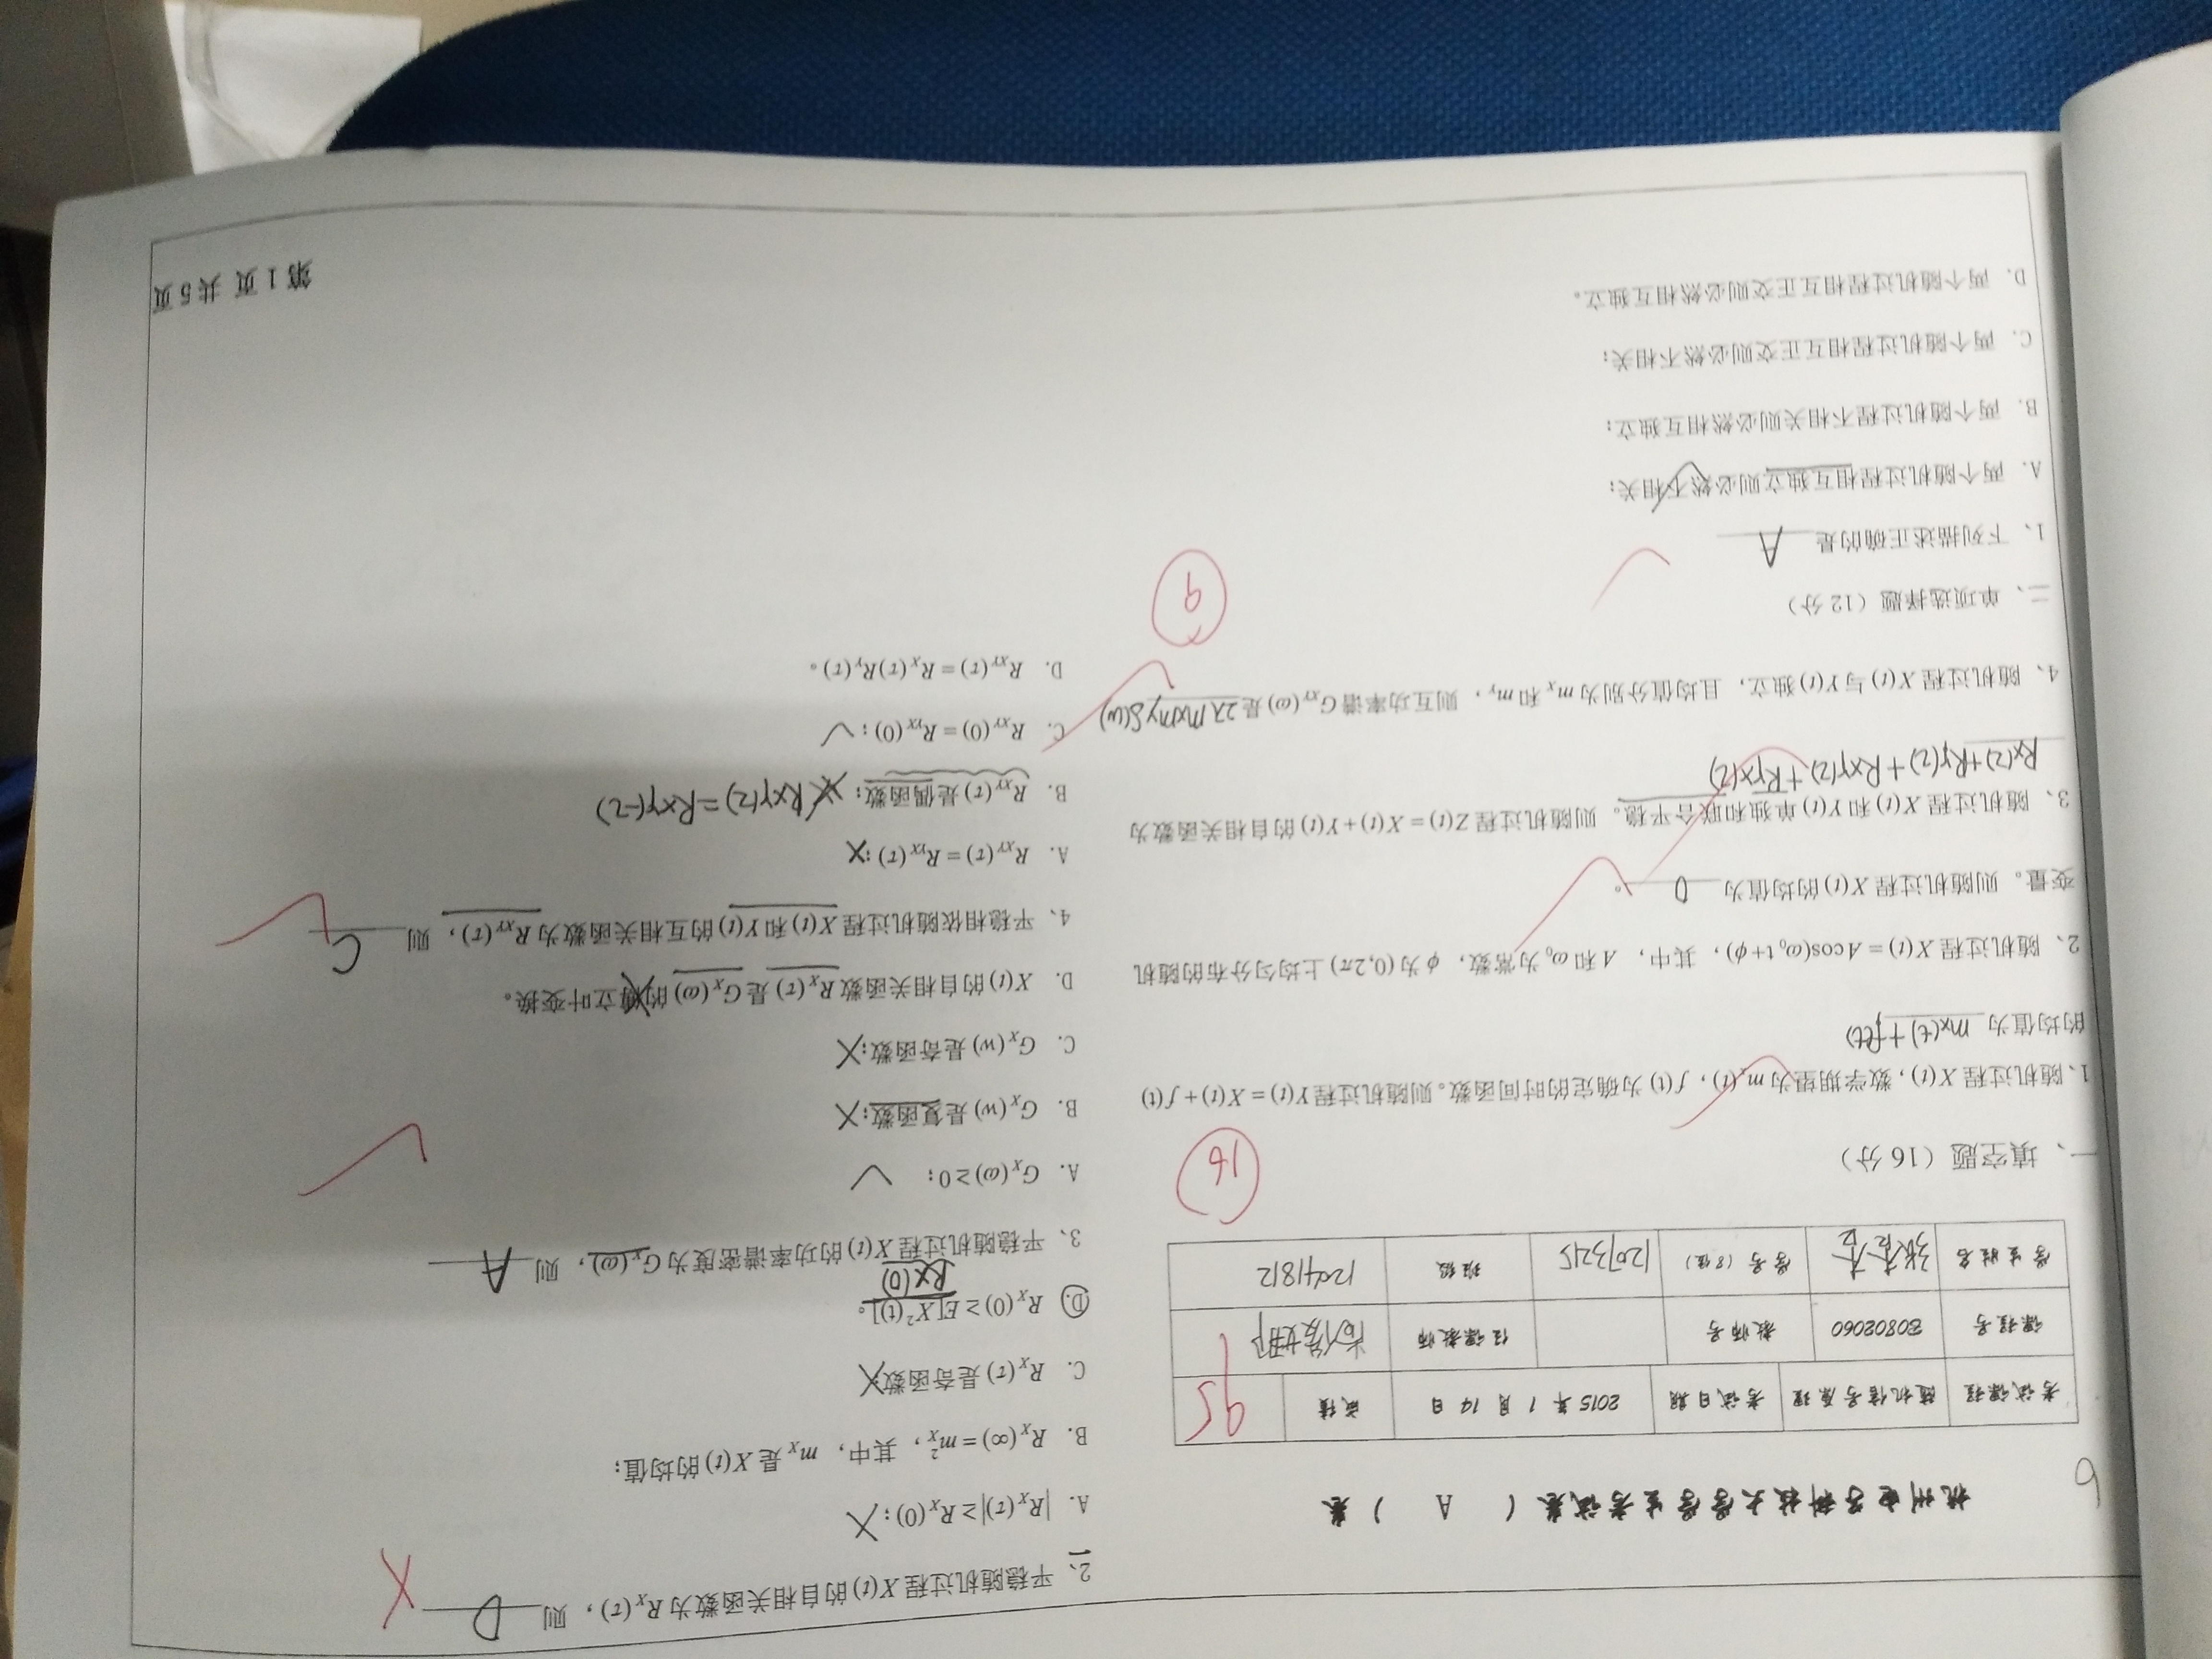 6
杭州电子科技大学学生考试卷（ A ）卷
考试课程 随机信号原理 考试日期 2015年1月14日 成绩 95
课程号 B0802060 教师号 任课教师 尚俊娜
学生姓名 张杏杏 学号（8位） 12073215 班级 12041812
一、填空题（16分）
16
1、随机过程X(t)，数学期望为mₓ(t)，f(t)为确定的时间函数。则随机过程Y(t)=X(t)+f(t)
的均值为 mx(t)+f(t)
2、随机过程X(t)=Acos(ω₀t+ϕ)，其中，A和ω₀为常数，ϕ为(0,2π)上均匀分布的随机
变量。则随机过程X(t)的均值为 0 。
3、随机过程X(t)和Y(t)单独和联合平稳。则随机过程Z(t)=X(t)+Y(t)的自相关函数为
Rx(τ)+Ry(τ)+RXY(τ)+RYX(τ)
4、随机过程X(t)与Y(t)独立，且均值分别为m_X和m_Y，则互功率谱G_XY(ω)是 2πmxmyδ(ω)
9
二、单项选择题（12分）
1、下列描述正确的是 A
A. 两个随机过程相互独立则必然不相关；
B. 两个随机过程不相关则必然相互独立；
C. 两个随机过程相互正交则必然不相关；
D. 两个随机过程相互正交则必然相互独立。
2、平稳随机过程X(t)的自相关函数为R_X(τ)，则 D
A. |R_X(τ)|≥R_X(0)；
B. R_X(∞)=m²_X，其中，m_X是X(t)的均值；
C. R_X(τ)是奇函数；
D. R_X(0)≥E[X²(t)]。
RX(0)
3、平稳随机过程X(t)的功率谱密度为G_X(ω)，则 A
A. G_X(ω)≥0；
B. G_X(w)是复函数；
C. G_X(w)是奇函数；
D. X(t)的自相关函数R_X(τ)是G_X(ω)的傅立叶变换。
4、平稳相依随机过程X(t)和Y(t)的互相关函数为R_XY(τ)，则 C
A. R_XY(τ)=R_YX(τ)；
B. R_XY(τ)是偶函数； RXY(τ)=RXY(-τ)
C. R_XY(0)=R_YX(0)；
D. R_XY(τ)=R_X(τ)R_Y(τ)。
第1页 共5页